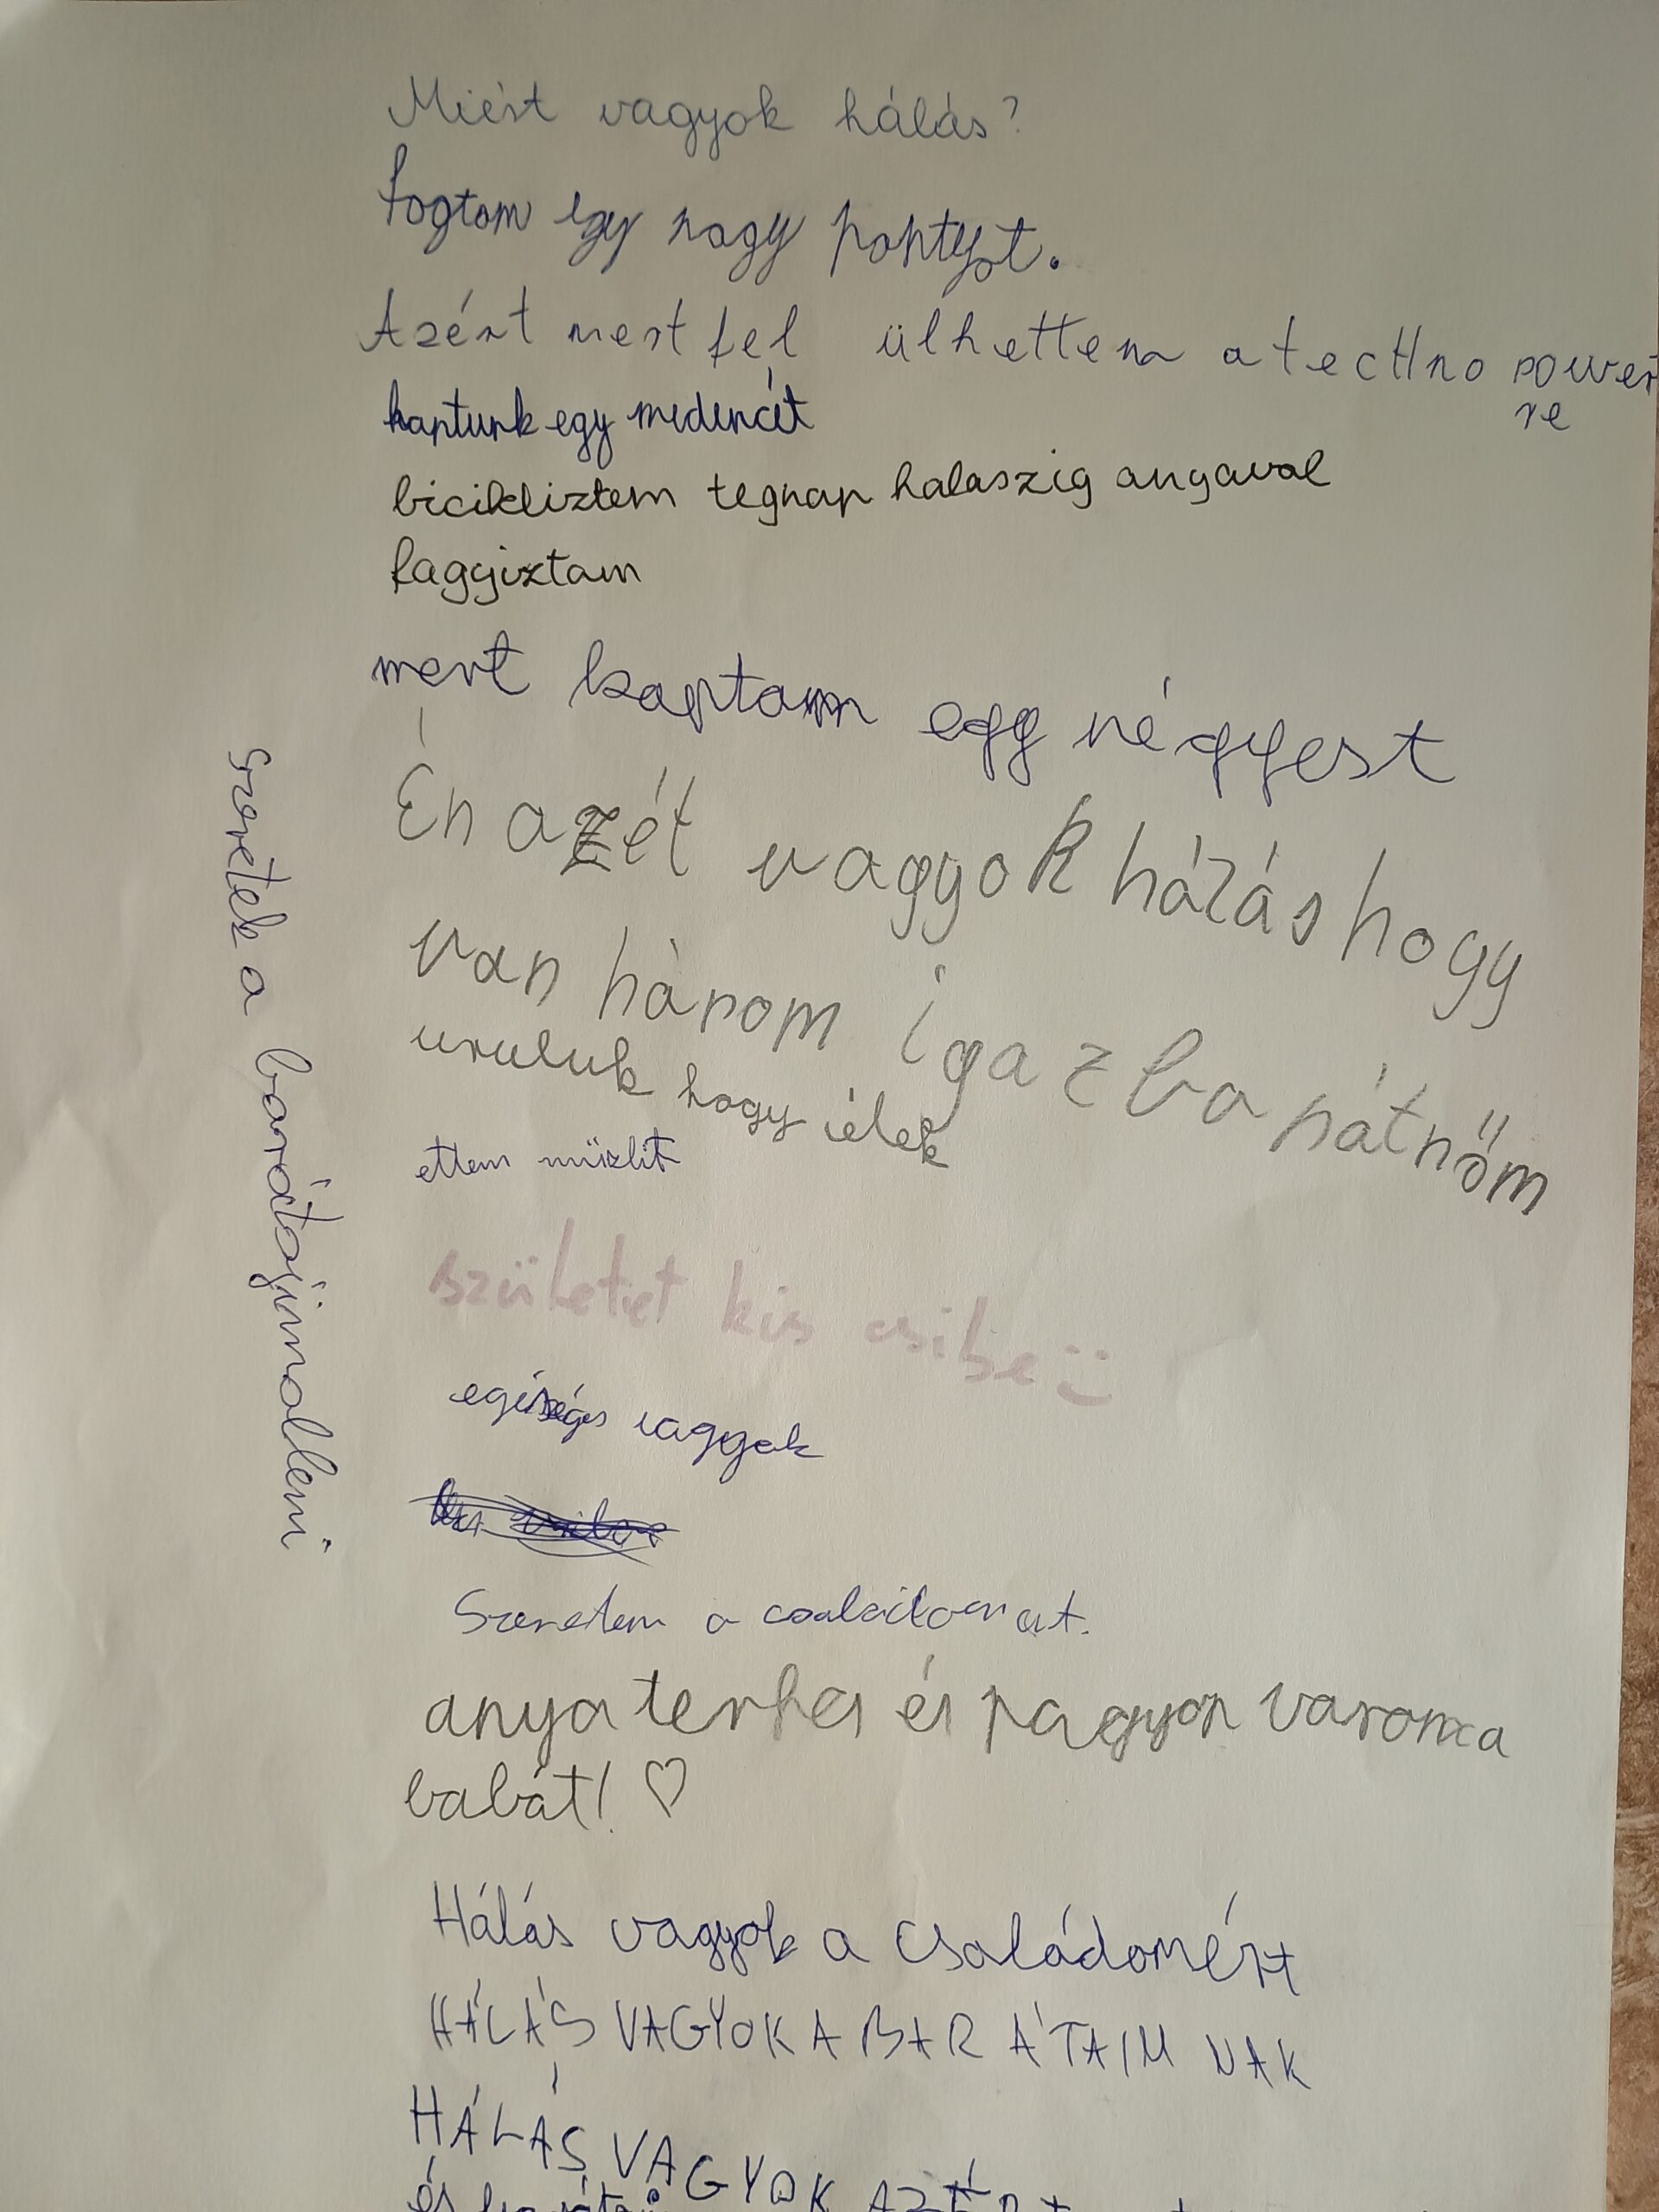 Miért vagyok hálás?
fogtam egy nagy pontyot.
Azért mert fel ülhettem a tecHno power
re
kaptunk egy medencét
bicikliztem tegnap halaszig anyaval
fagyiztam
mert kaptam egy négyest
Én azét vagyok hálás hogy
van három igaz barátnőm
uruluk hogy élek
ettem müzlit
születet kis csibe :)
egéségés vagyok
Szeretem a családomat.
anya terhes és nagyon varom a
babát! ♡
Hálás vagyok a családomért
HÁLÁS VAGYOK A BARÁTAIM NAK
HÁLÁS VAGYOK AZÉRT
és
Szeretek a barátaimal leni